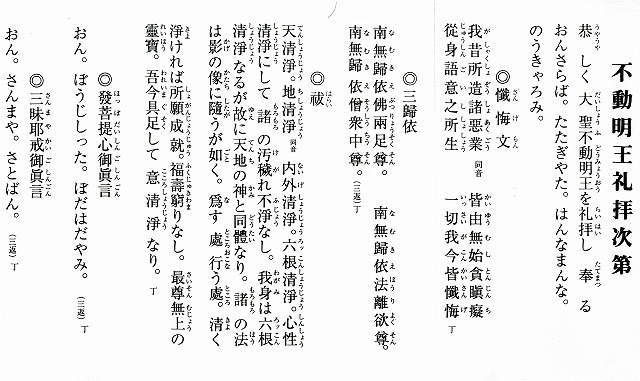 不動明王礼拝次第
恭しく大聖不動明王を礼拝し奉る
おんさらば。たたぎやた。はんなまんな。
のうきゃろみ。
◎懺悔文
我昔所造諸悪業 同音 皆由無始貪瞋癡
從身語意之所生 一切我今皆懺悔 丁
◎三歸依
南無歸依佛兩足尊。 南無歸依法離欲尊。
南無歸依僧衆中尊。(三返)丁
◎祓
天清淨。地清淨 同音 内外清淨。六根清淨。心性
清淨にして諸の汚穢れ不淨なし。我身は六根
清淨なるが故に天地の神と同體なり。諸の法
は影の像に隨うが如く。爲す處行う處。清く
淨ければ所願成就。福壽窮りなし。最尊無上の
靈寶。吾今具足して意清淨なり。丁
◎發菩提心御眞言
おん。ぼうじしった。ぼだはだやみ。(三返)丁
◎三昧耶戒御眞言
おん。さんまや。さとばん。(三返)丁